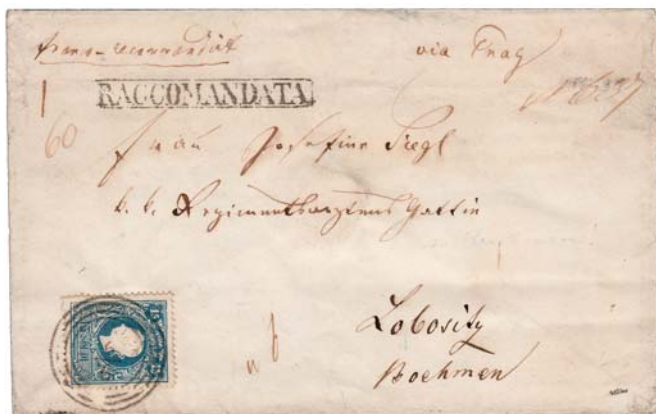 franco-recommandirt
via Prag
RACCOMANDATA
60
Frau Josefine Siegl
k. k. Regimentsarztens Gattin
Lobositz
Boehmen
15